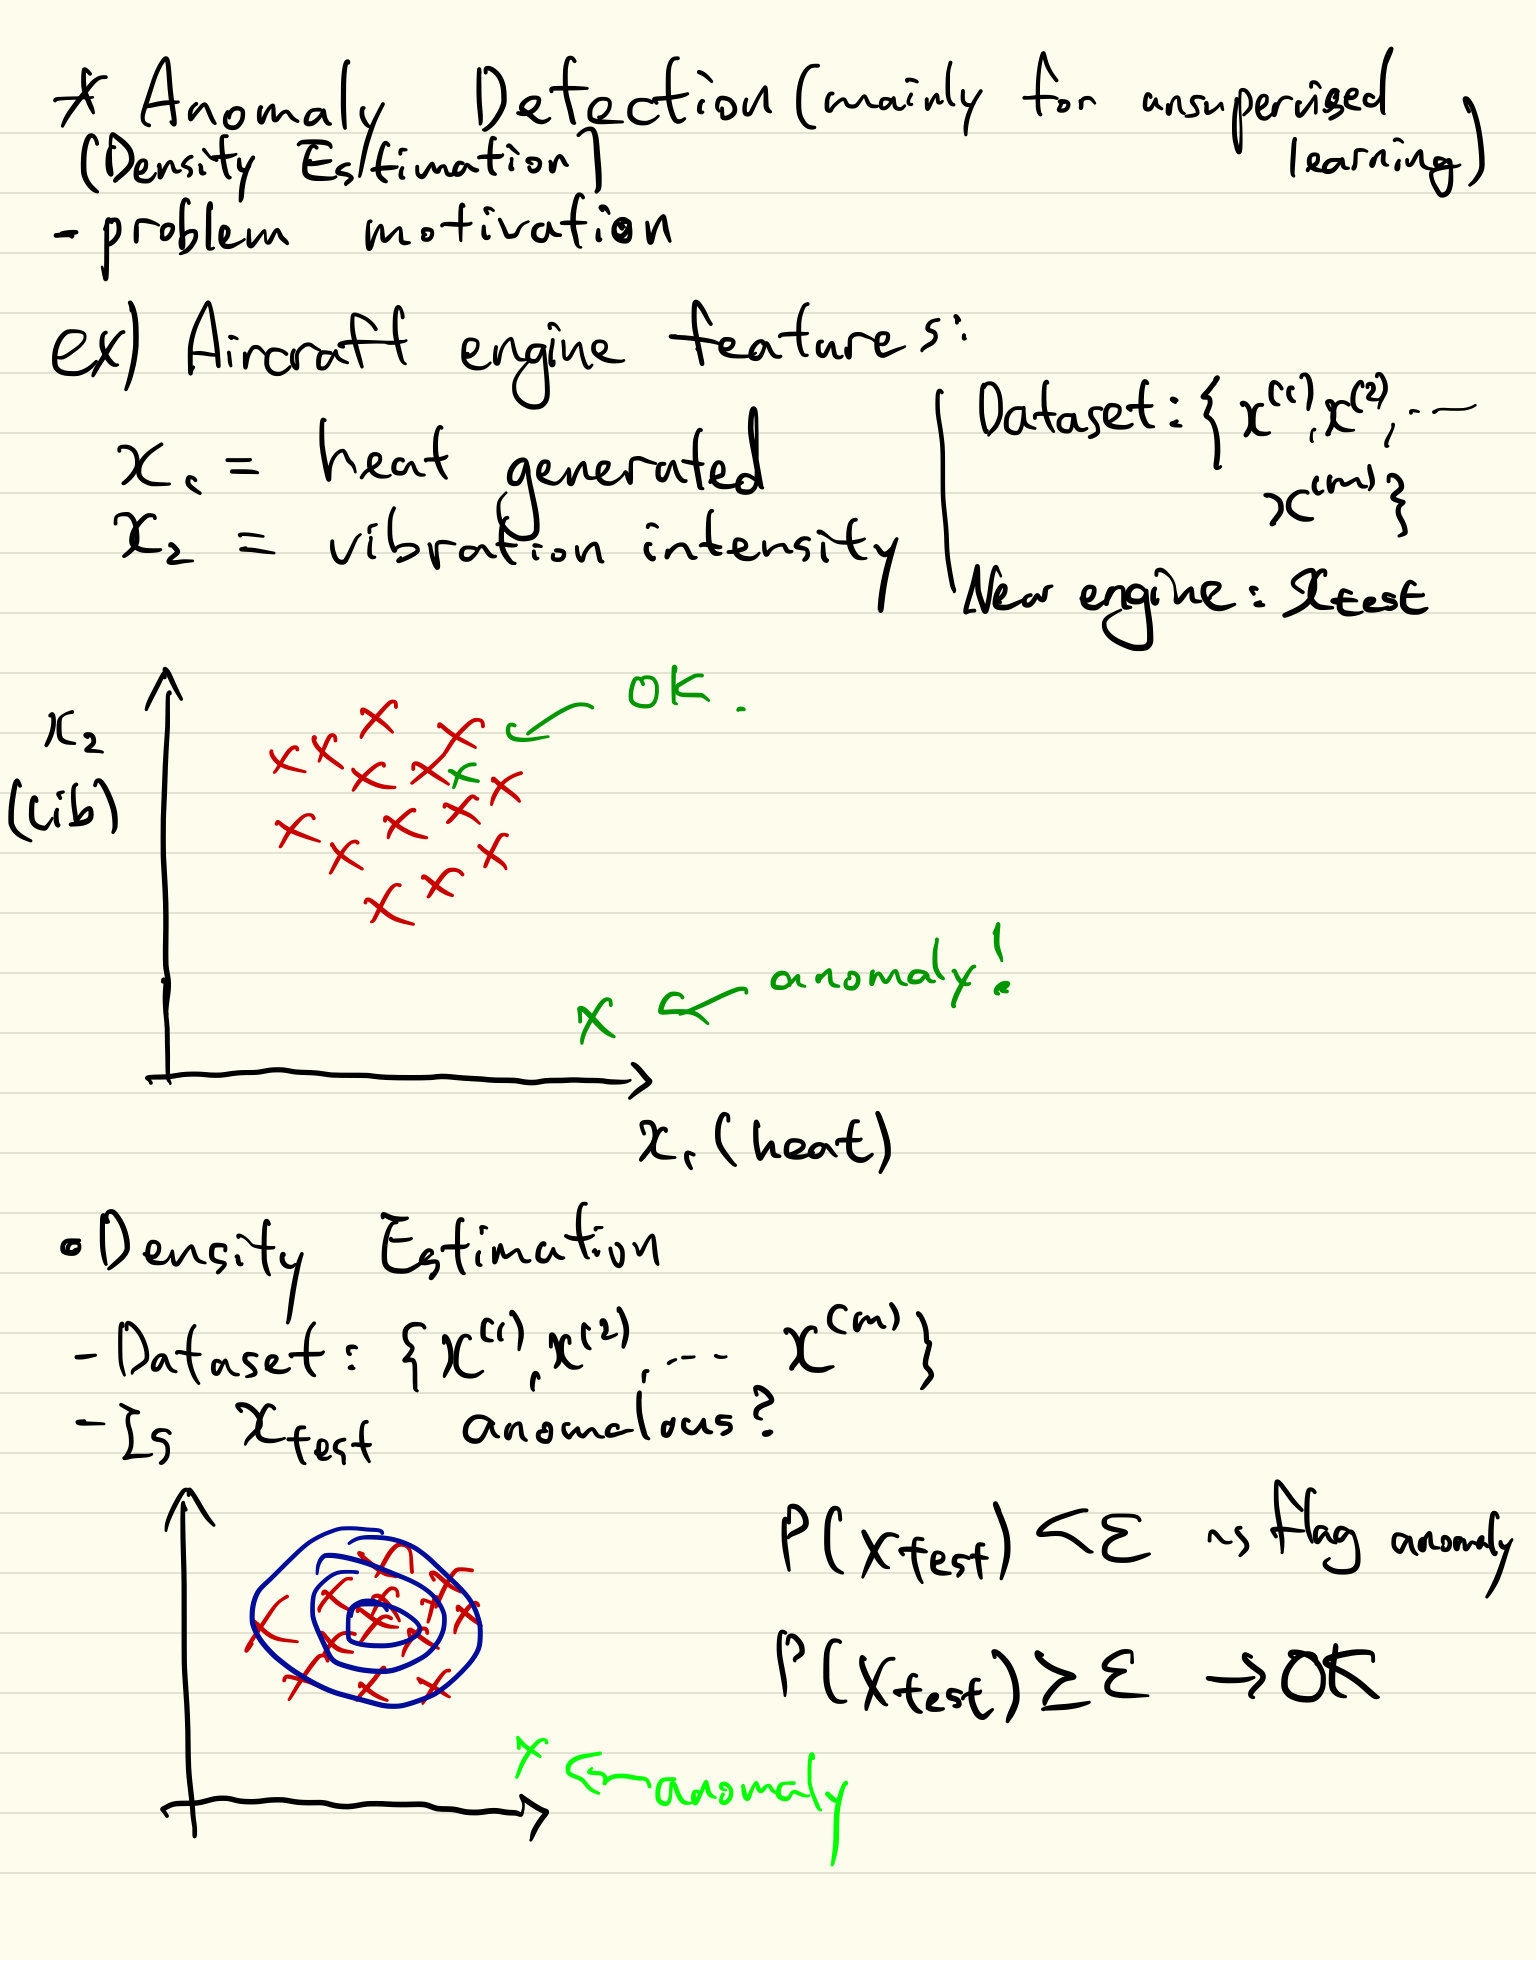 * Anomaly Detection (mainly for ansupervised
learning)
(Density Estimation)
- problem motivation
ex) Aircraft engine features:
x₁ = heat generated
x₂ = vibration intensity
Dataset: { x⁽¹⁾, x⁽²⁾, ...
x⁽ᵐ⁾ }
New engine: x_test
OK.
x₂
(vib)
anomaly!
x₁ (heat)
• Density Estimation
- Dataset: { x⁽¹⁾, x⁽²⁾, ... x⁽ᵐ⁾ }
- Is x_test anomalous?
P(x_test) < ε ~> flag anomaly
P(x_test) ≥ ε → OK
anomaly